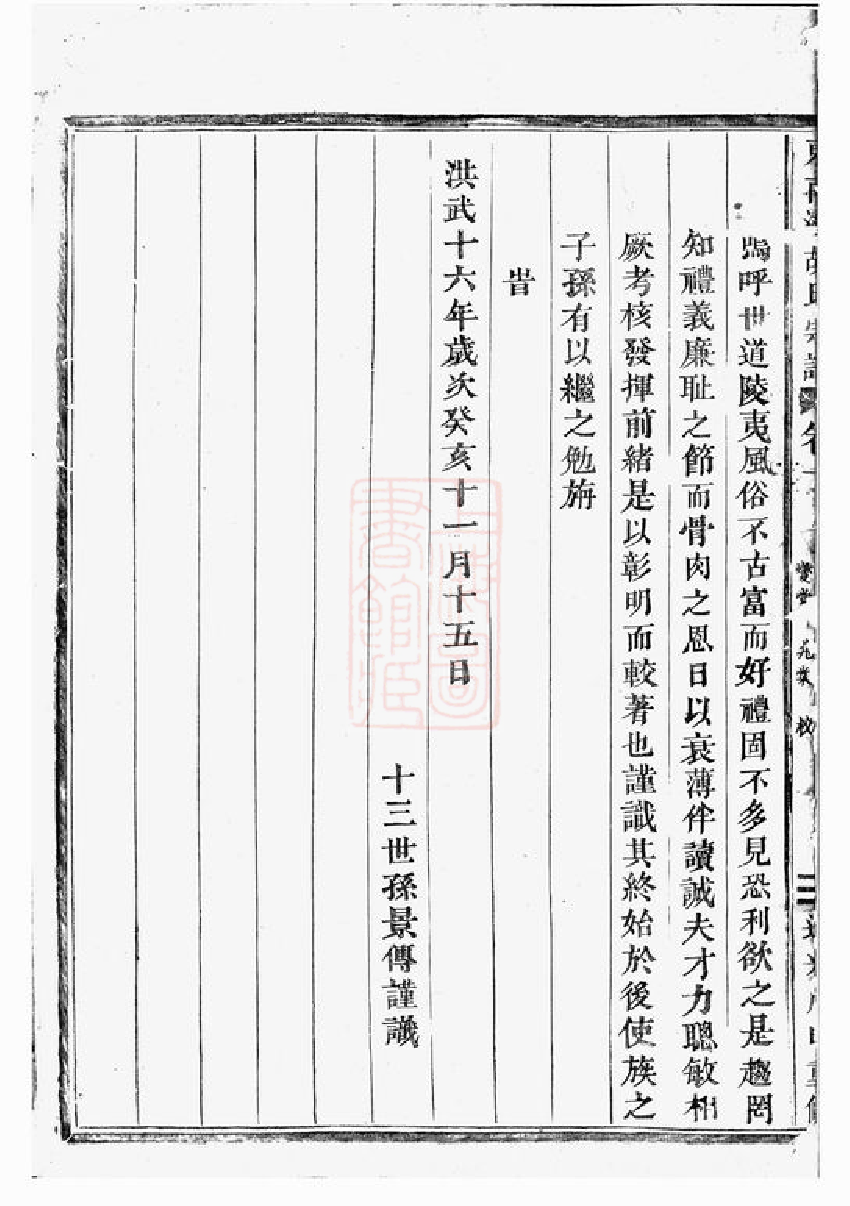 嗚呼世道陵夷風俗不古富而好禮固不多見恐利欲之是趨罔
知禮義廉恥之節而骨肉之恩日以衰薄伴讀誠夫才力聰敏相
厥考核發揮前緒是以彰明而較著也謹識其終始於後使族之
子孫有以繼之勉旃
旹
洪武十六年歲次癸亥十一月十五日
十三世孫景傳謹識
上海圖
書館藏